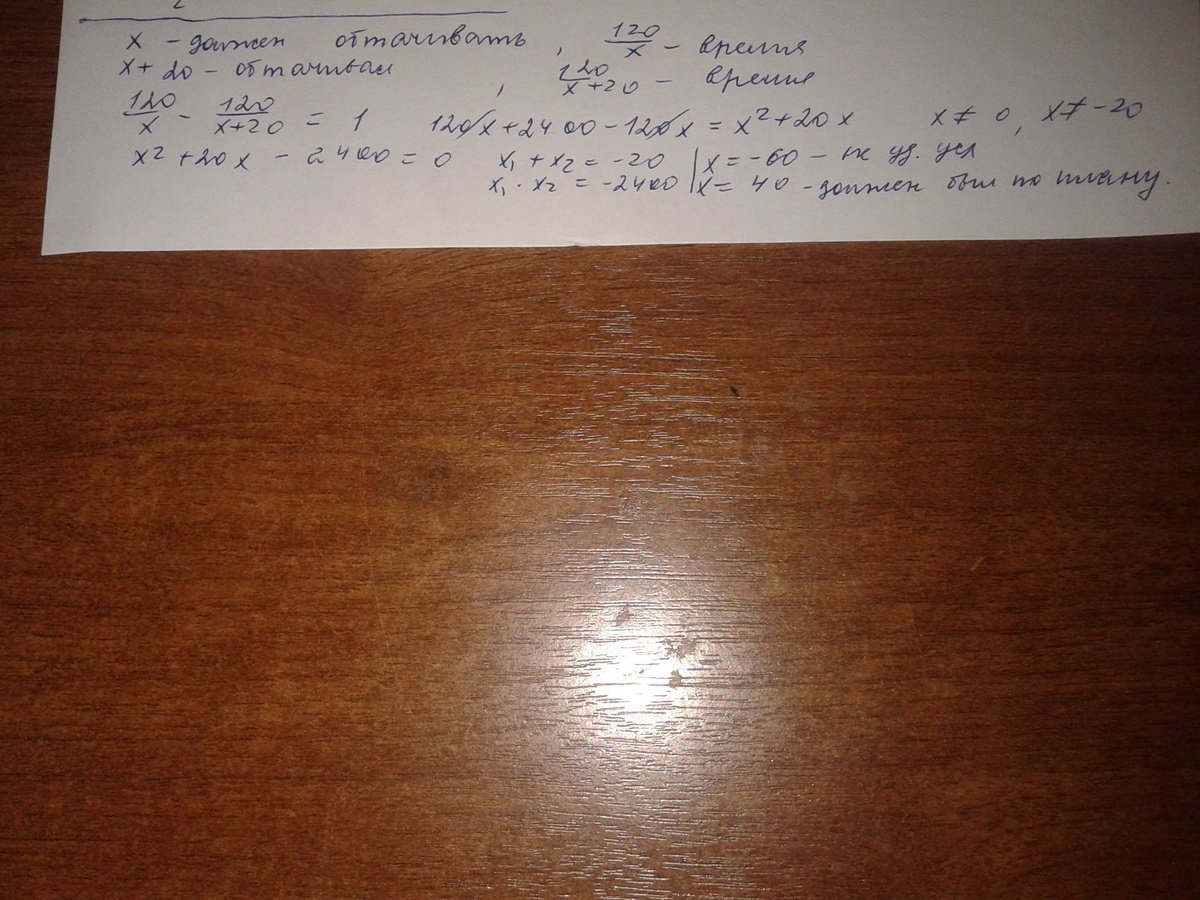 x - должен обтачивать, 120/x - время
x + 20 - обтачивал, 120/(x+20) - время
120/x - 120/(x+20) = 1 120x + 2400 - 120x = x² + 20x x ≠ 0, x ≠ -20
x² + 20x - 2400 = 0 x₁ + x₂ = -20 | x = -60 - не уд. усл
x₁ · x₂ = -2400 | x = 40 - должен был по плану.